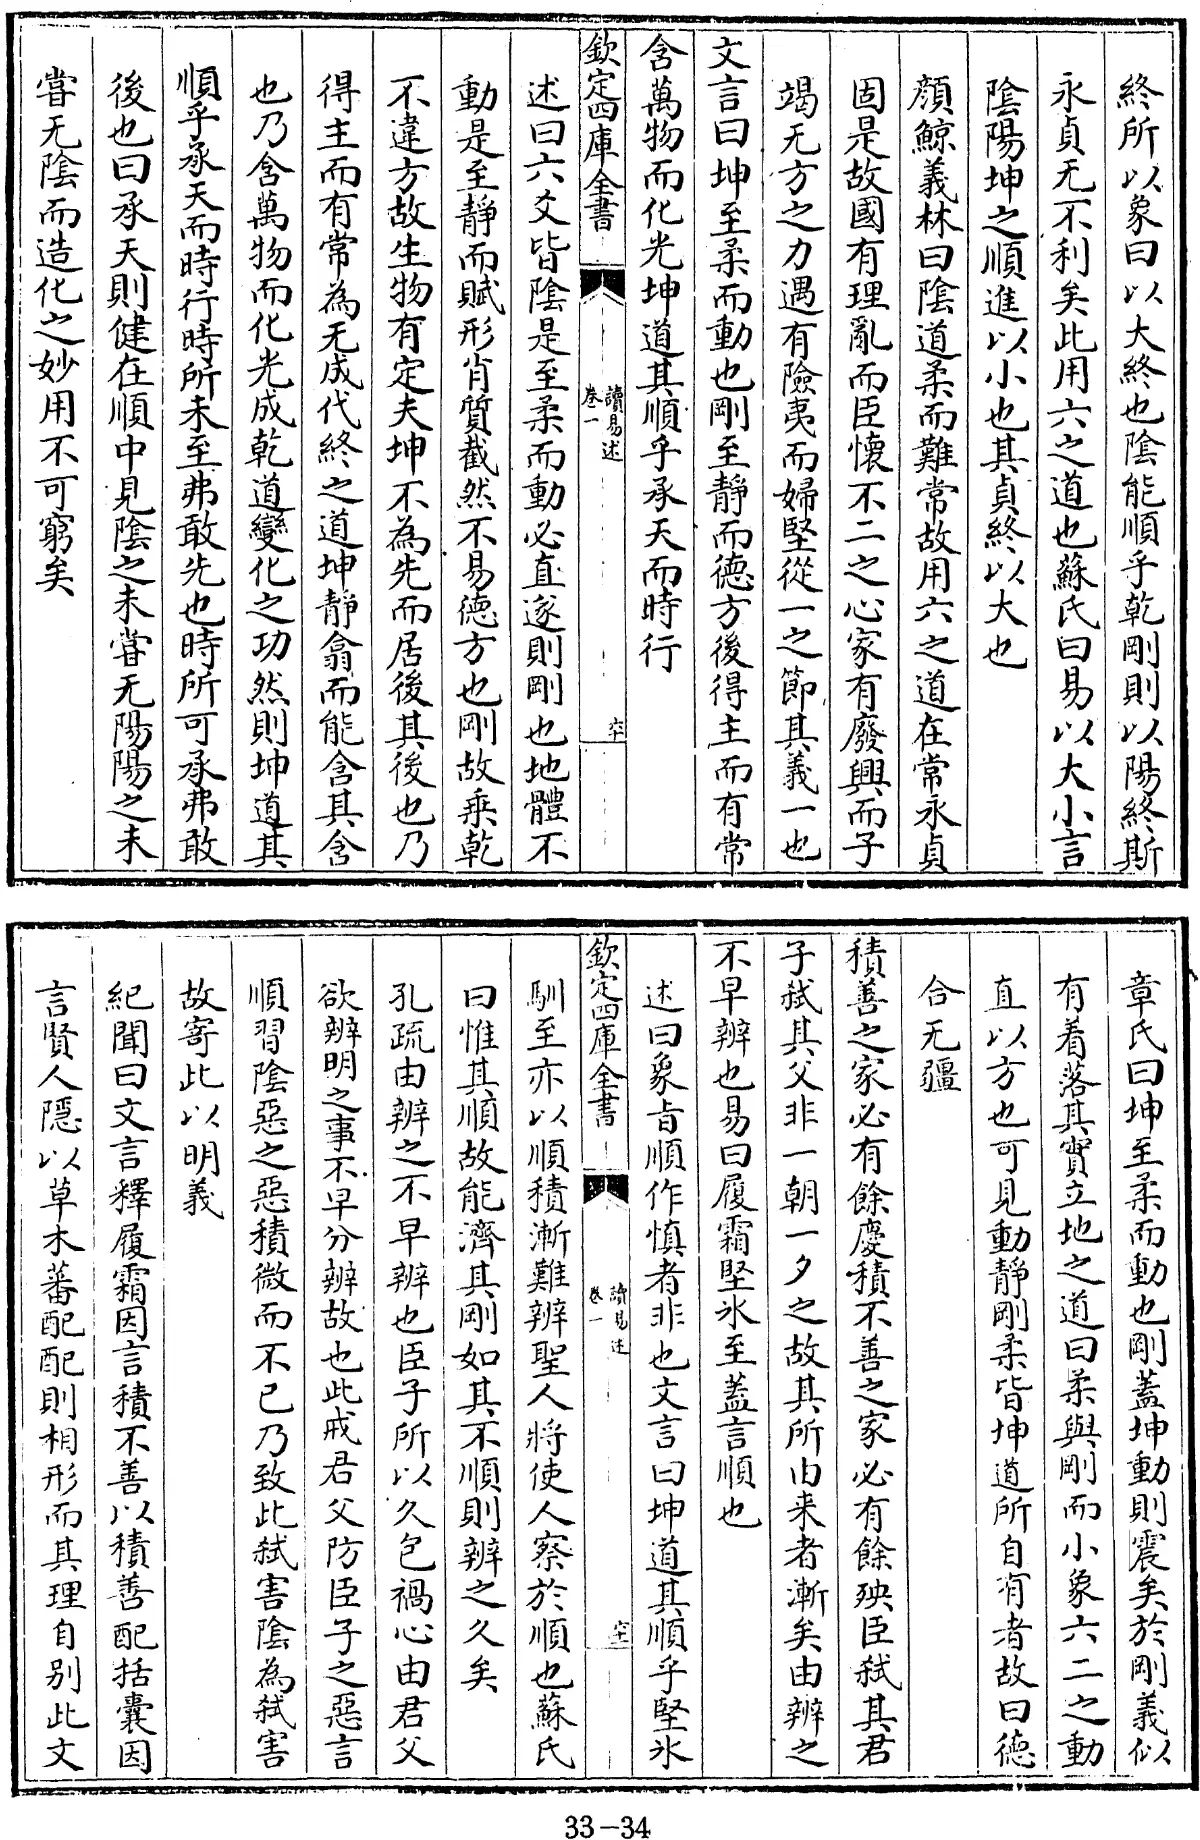 終所以象曰以大終也陰能順乎乾剛則以陽終斯
永貞无不利矣此用六之道也蘇氏曰易以大小言
陰陽坤之順進以小也其貞終以大也
顏鯨義林曰陰道柔而難常故用六之道在常永貞
固是故國有理亂而臣懷不二之心家有廢興而子
竭无方之力遇有險夷而婦堅從一之節其義一也
文言曰坤至柔而動也剛至靜而德方後得主而有常
含萬物而化光坤道其順乎承天而時行
欽定四庫全書
讀易述
卷一
述曰六爻皆陰是至柔而動必直遂則剛也地體不
動是至靜而賦形肖質截然不易德方也剛故乘乾
不違方故生物有定夫坤不為先而居後其後也乃
得主而有常為无成代終之道坤靜翕而能含其含
也乃含萬物而化光成乾道變化之功然則坤道其
順乎承天而時行時所未至弗敢先也時所可承弗敢
後也曰承天則健在順中見陰之未嘗无陽陽之未
嘗无陰而造化之妙用不可窮矣
章氏曰坤至柔而動也剛蓋坤動則震矣於剛義似
有着落其實立地之道曰柔與剛而小象六二之動
直以方也可見動靜剛柔皆坤道所自有者故曰德
合无疆
積善之家必有餘慶積不善之家必有餘殃臣弑其君
子弑其父非一朝一夕之故其所由来者漸矣由辨之
不早辨也易曰履霜堅氷至蓋言順也
述曰象旨順作慎者非也文言曰坤道其順乎堅氷
欽定四庫全書
讀易述
卷一
馴至亦以順積漸難辨聖人將使人察於順也蘇氏
曰惟其順故能濟其剛如其不順則辨之久矣
孔疏由辨之不早辨也臣子所以久包禍心由君父
欲辨明之事不早分辨故也此戒君父防臣子之惡言
順習陰惡之惡積微而不已乃致此弑害陰為弑害
故寄此以明義
紀聞曰文言釋履霜因言積不善以積善配括囊因
言賢人隱以草木蕃配配則相形而其理自别此文
33-34